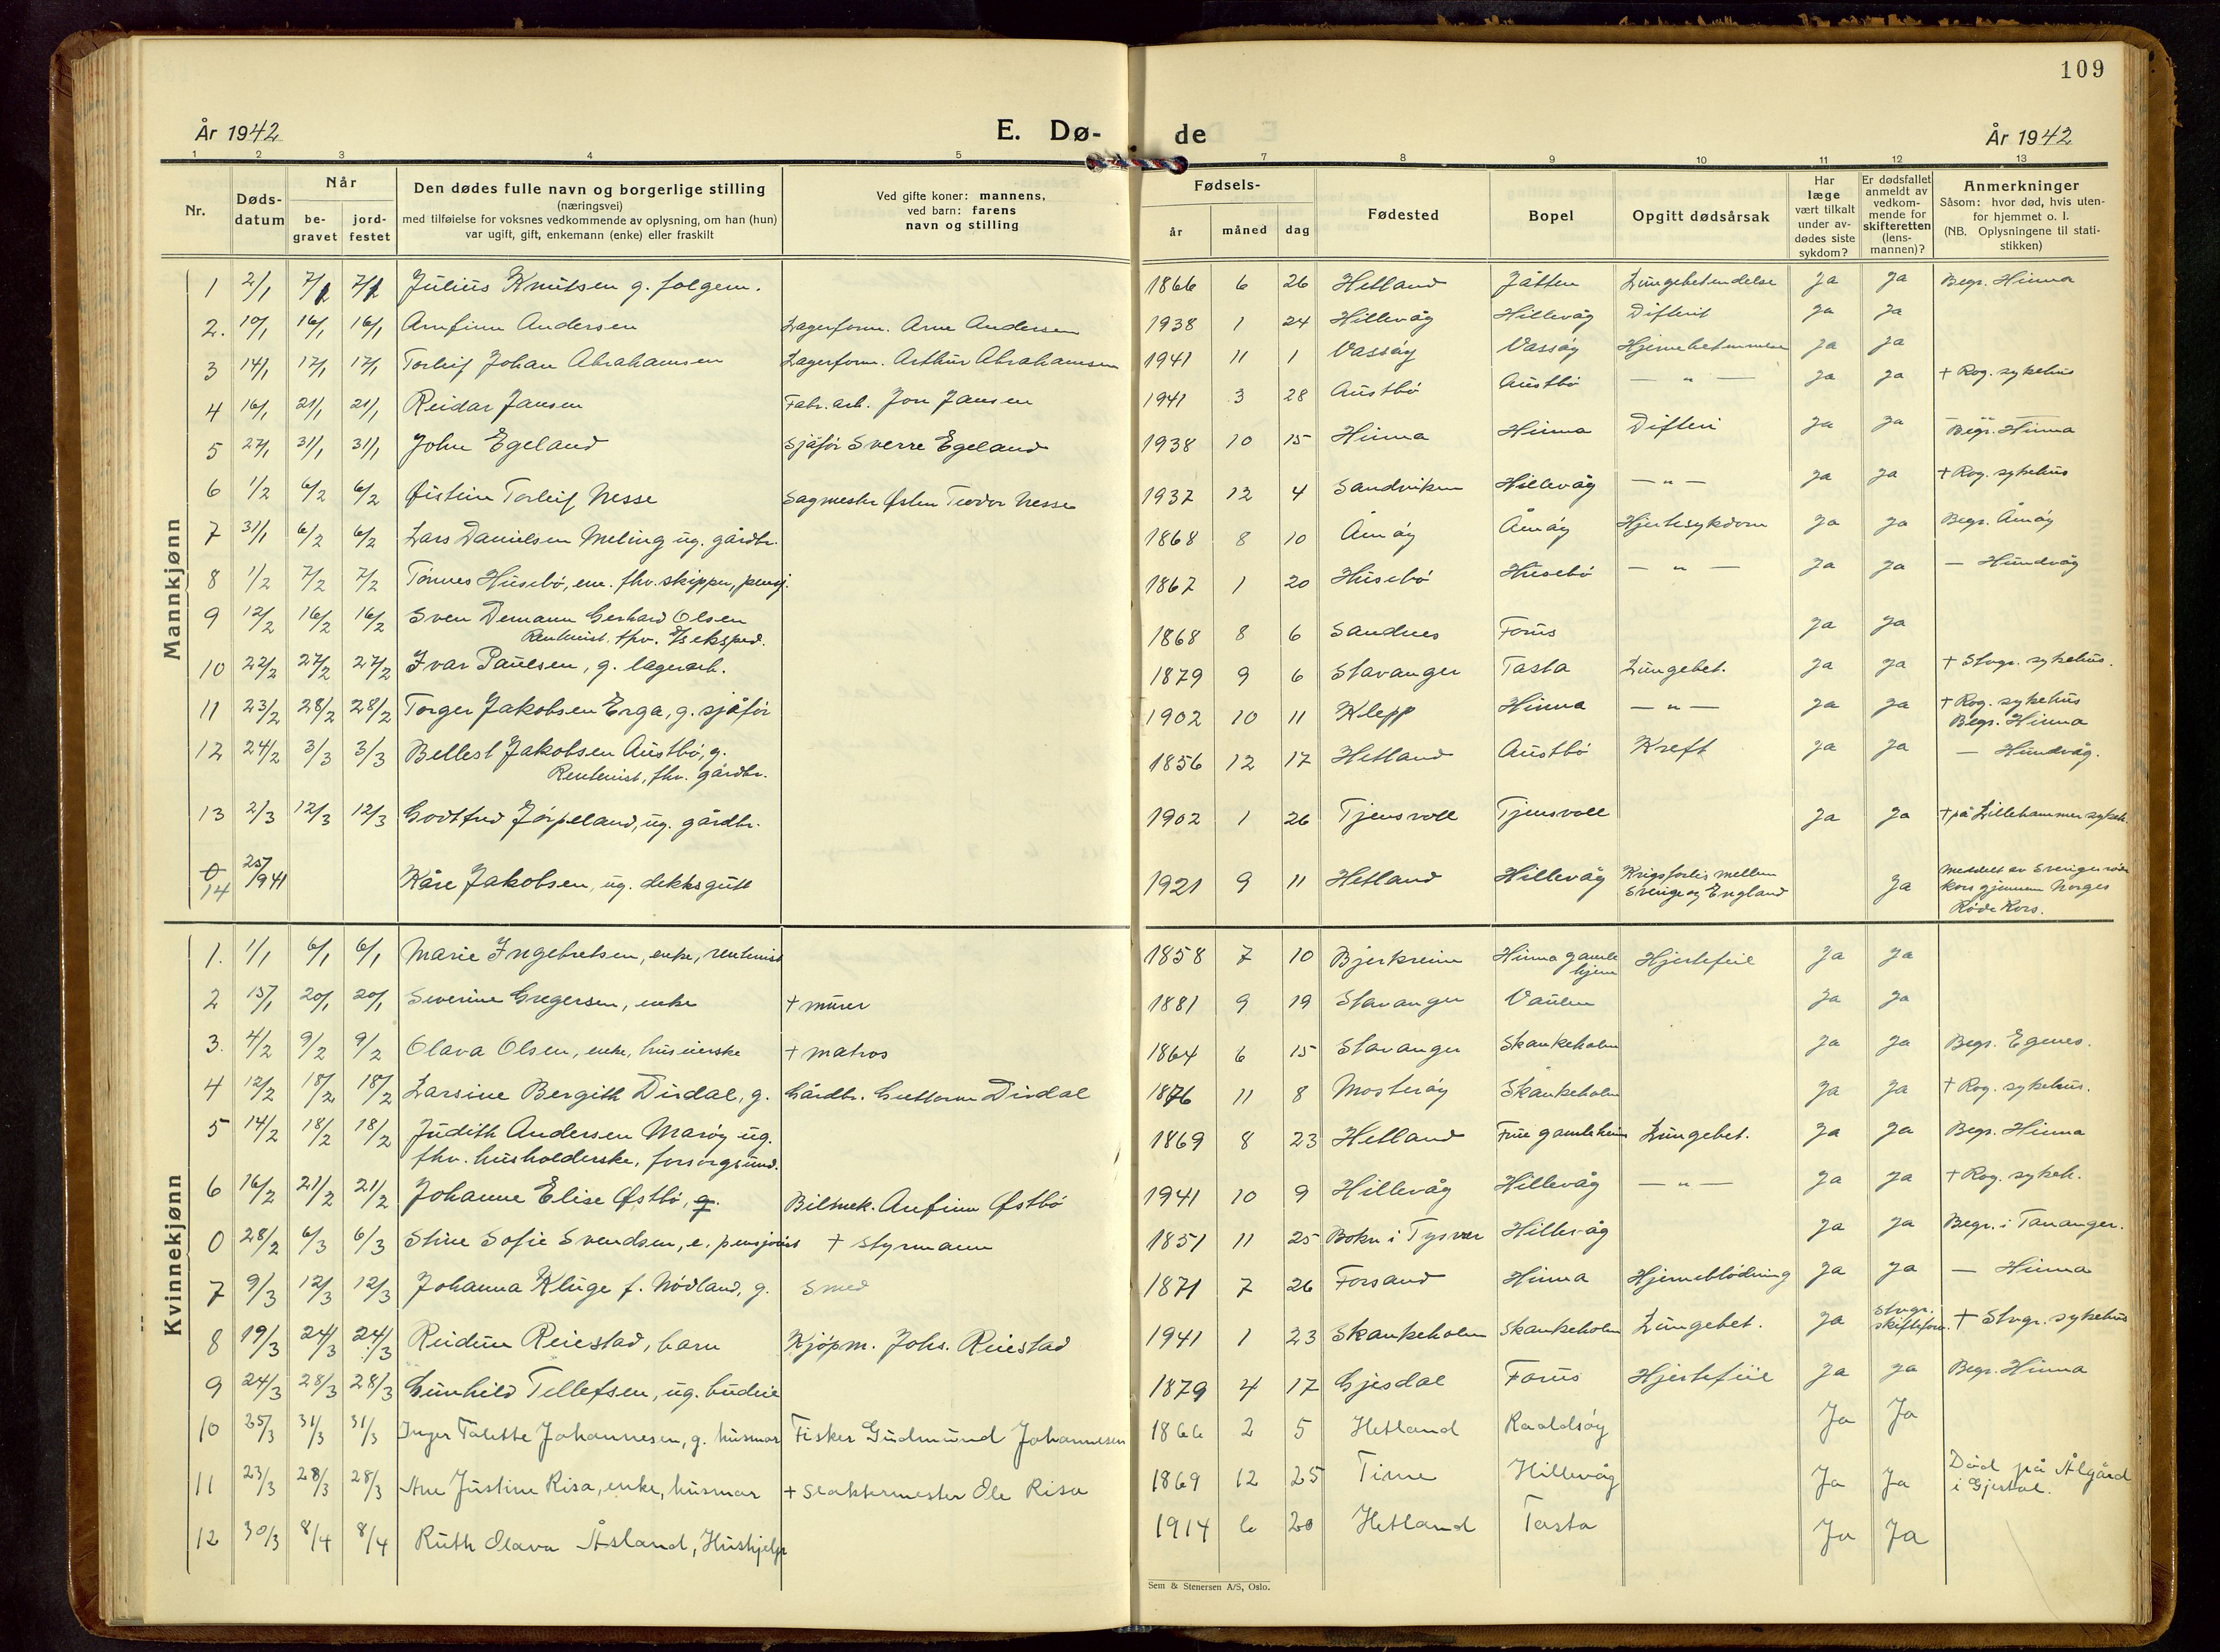 109
År 1942
E. Dø- de
År 1942
1 2 3 4 5 7 8 9 10 11 12 13
Nr.
Døds-
datum
Når
be-
gravet
jord-
festet
Den dødes fulle navn og borgerlige stilling
(næringsvei)
med tilføielse for voksnes vedkommende av oplysning, om han (hun)
var ugift, gift, enkemann (enke) eller fraskilt
Ved gifte koner: mannens,
ved barn: farens
navn og stilling
Fødsels-
år måned dag
Fødested
Bopel
Opgitt dødsårsak
Har
læge
vært tilkalt
under av-
dødes siste
sykdom?
Er dødsfallet
anmeldt av
vedkom-
mende for
skifteretten
(lens-
mannen)?
Anmerkninger
Såsom: hvor død, hvis uten-
for hjemmet o. l.
(NB. Oplysningene til stati-
stikken)
Mannkjønn
1 2/1 7/1 7/1 Julius Knutsen g. 1866 6 26 Hetland Jåtten Lungebetendelse Ja Ja Begr. Hinna
2. 10/1 16/1 16/1 Arnfinn Andersen Lagerform. Arne Andersen 1938 1 24 Hillevåg Hillevåg Difterit Ja Ja
3 14/1 17/1 17/1 Torleif Johan Abrahamsen Lagerform. Arthur Abrahamsen 1941 11 1 Vassøy Vassøy Ja Ja
4 16/1 21/1 21/1 Reidar Jansen Fabr. arb. Jon Jansen 1941 3 28 Austbø Austbø — " — Ja Ja + Rog. sykehus
5 27/1 31/1 31/1 John Egeland Sjåför Sverre Egeland 1938 10 15 Hinna Hinna Difteri Ja Ja Begr. Hinna
6 1/2 6/2 6/2 Øistein Torleif Nesse Sagmester Østen Teodor Nesse 1937 12 4 Sandviken Hillevåg — " — Ja Ja + Rog. sykehus
7 31/1 6/2 6/2 Lars Danielsen Meling ug. gårdbr. 1868 8 10 Åmøy Åmøy Hjertesykdom Ja Ja Begr. Åmøy
8 1/2 7/2 7/2 Tønnes Husebø, enm. fhv. skipper, pensj. 1867 1 20 Husebø Husebø — " — Ja Ja — Hundvåg
9 12/2 16/2 16/2 Sven Demann Gerhard Olsen
Rentenist. fhv. eksped. 1868 8 6 Sandnes Forus Ja Ja
10 22/2 27/2 27/2 Ivar Paulsen, g. lagerarb. 1879 9 6 Stavanger Tasta Lungebet. Ja Ja + Stvgr. sykehus.
11 23/2 28/2 28/2 Torger Jakobsen Erga, g. sjåför 1902 10 11 Klepp Hinna — " — Ja Ja + Rog. sykehus
Begr. Hinna
12 24/2 3/3 3/3 Bellest Jakobsen Austbø, g.
Rentenist, fhv. gårdbr. 1856 12 17 Hetland Austbø Kreft Ja Ja — Hundvåg.
13 2/3 12/3 12/3 Godtfred Jørpeland, ug. gårdbr. 1902 1 26 Tjensvoll Tjensvoll Ja Ja + på Lillehammer sykeh.
0
14 25/7 1941 Kåre Jakobsen, ug. dekksgutt 1921 9 11 Hetland Hillevåg Krigsforlis mellem
Sverige og England Ja Meddelt av Sveriges röde
kors gjennem Norges
Røde Kors.
Kvinnekjønn
1. 1/1 6/1 6/1 Marie Ingebretsen, enke, rentenist 1858 7 10 Bjerkreim Hinna gamle
hjem Hjertefeil Ja Ja
2 15/1 20/1 20/1 Severine Gregersen, enke + murer 1881 9 19 Stavanger Vaulen Ja Ja
3. 4/2 9/2 9/2 Olava Olsen, enke, huseierske + matros 1864 6 15 Stavanger Skankeholm Ja Ja Begr. Egenes.
4 12/2 18/2 18/2 Larsine Bergith Dirdal, g. Gårdbr. Guttorm Dirdal 1876 11 8 Mosterøy Skankeholm Ja Ja + Rog. sykehus.
5 14/2 18/2 18/2 Judith Andersen Marøy ug.
fhv. husholderske, forsorgsund. 1869 8 23 Hetland Frue gamlehein Lungebet. Ja Ja Begr. Hinna
6 16/2 21/2 21/2 Johanne Elise Østbø, g. Bilmek. Arnfinn Østbø 1941 10 9 Hillevåg Hillevåg — " — Ja Ja + Rog. sykeh.
0 28/2 6/3 6/3 Stine Sofie Svendsen, e. pensjonist + Styrmann 1851 11 25 Bokn i Tysvær Hillevåg Ja Ja Begr. i Tananger.
7 9/3 12/3 12/3 Johanna Kluge f. Nødland, g. Smed 1871 7 26 Forsand Hinna Hjerneblødning Ja Ja — Hinna
8 19/3 24/3 24/3 Reidun Reiestad, barn Kjøpm. Johs. Reiestad 1941 1 23 Skankeholm Skankeholm Lungebet. Ja Stvgr.
skifteforv. + Stvgr. sykehus
9 24/3 28/3 28/3 Gunhild Tellefsen, ug. budeie 1879 4 17 Gjesdal Forus Hjertefeil Ja Ja Begr. Hinna
10 25/3 31/3 31/3 Inger Talette Johannesen, g. husmor Fisker Gudmund Johannesen 1866 2 5 Hetland Roaldsøy Ja Ja
11 23/3 28/3 28/3 Ane Justine Risa, enke, husmor + Slaktermester Ole Risa 1869 12 25 Time Hillevåg Ja Ja Död på Ålgård
i Gjesdal.
12 30/3 8/4 8/4 Ruth Olava Åsland, Hushjelp 1914 6 20 Hetland Tasta Ja Ja
Sem & Stenersen A/S, Oslo.